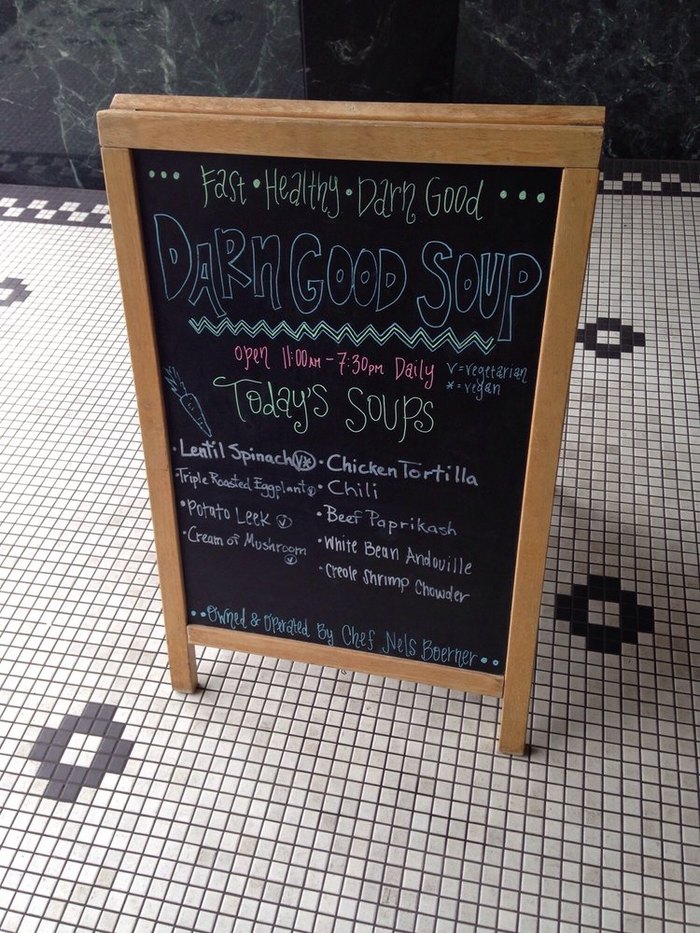 ••• Fast • Healthy • Darn Good •••
DARN GOOD SOUP
open 11:00AM - 7:30PM Daily
V = vegetarian
* = vegan
Today's Soups
• Lentil Spinach V*
• Triple Roasted Eggplant V
• Potato Leek V
• Cream of Mushroom V
• Chicken Tortilla
• Chili
• Beef Paprikash
• White Bean Andouille
• Creole Shrimp Chowder
•• Owned & Operated By Chef Nels Boerner ••